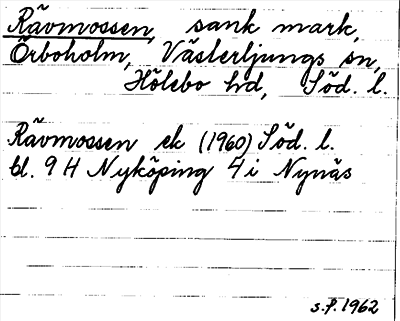 Rävmossen, sank mark,
Örboholm, Västerljungs sn,
Hölebo hd, Söd. l.
Rävmossen ek (1960) Söd. l.
bl. 9 H Nyköping 4 i Nynäs
s.P. 1962